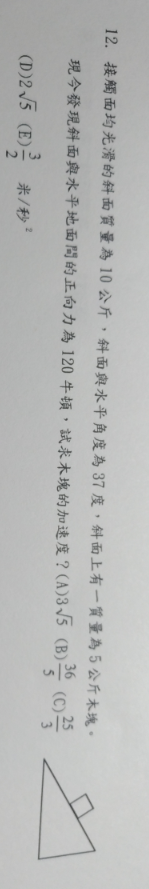 12. 接觸面均光滑的斜面質量為 10 公斤，斜面與水平角度為 37 度，斜面上有一質量為 5 公斤木塊。
現今發現斜面與水平地面間的正向力為 120 牛頓，試求木塊的加速度？(A)3√5 (B)36/5 (C)25/3
(D)2√5 (E)3/2 米/秒²